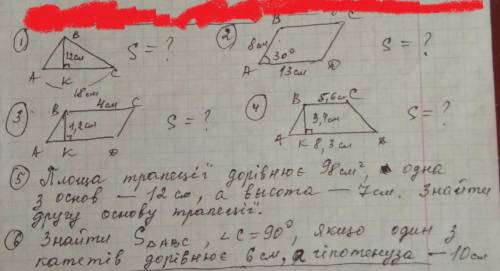 ① B 12см A K C 18см S = ?
② B C 8см 30° A 13см D S = ?
③ B 4см C 1,2см A K D S = ?
④ B 5,6см C 3,4см A K 8,3см D S = ?
⑤ Площа трапеції дорівнює 98см², одна
з основ — 12см, а высота — 7см. Знайти
другу основу трапеції.
⑥ Знайти S△ABC, ∠C=90°, якщо один з
катетів дорівнює 6см, а гіпотенуза — 10см